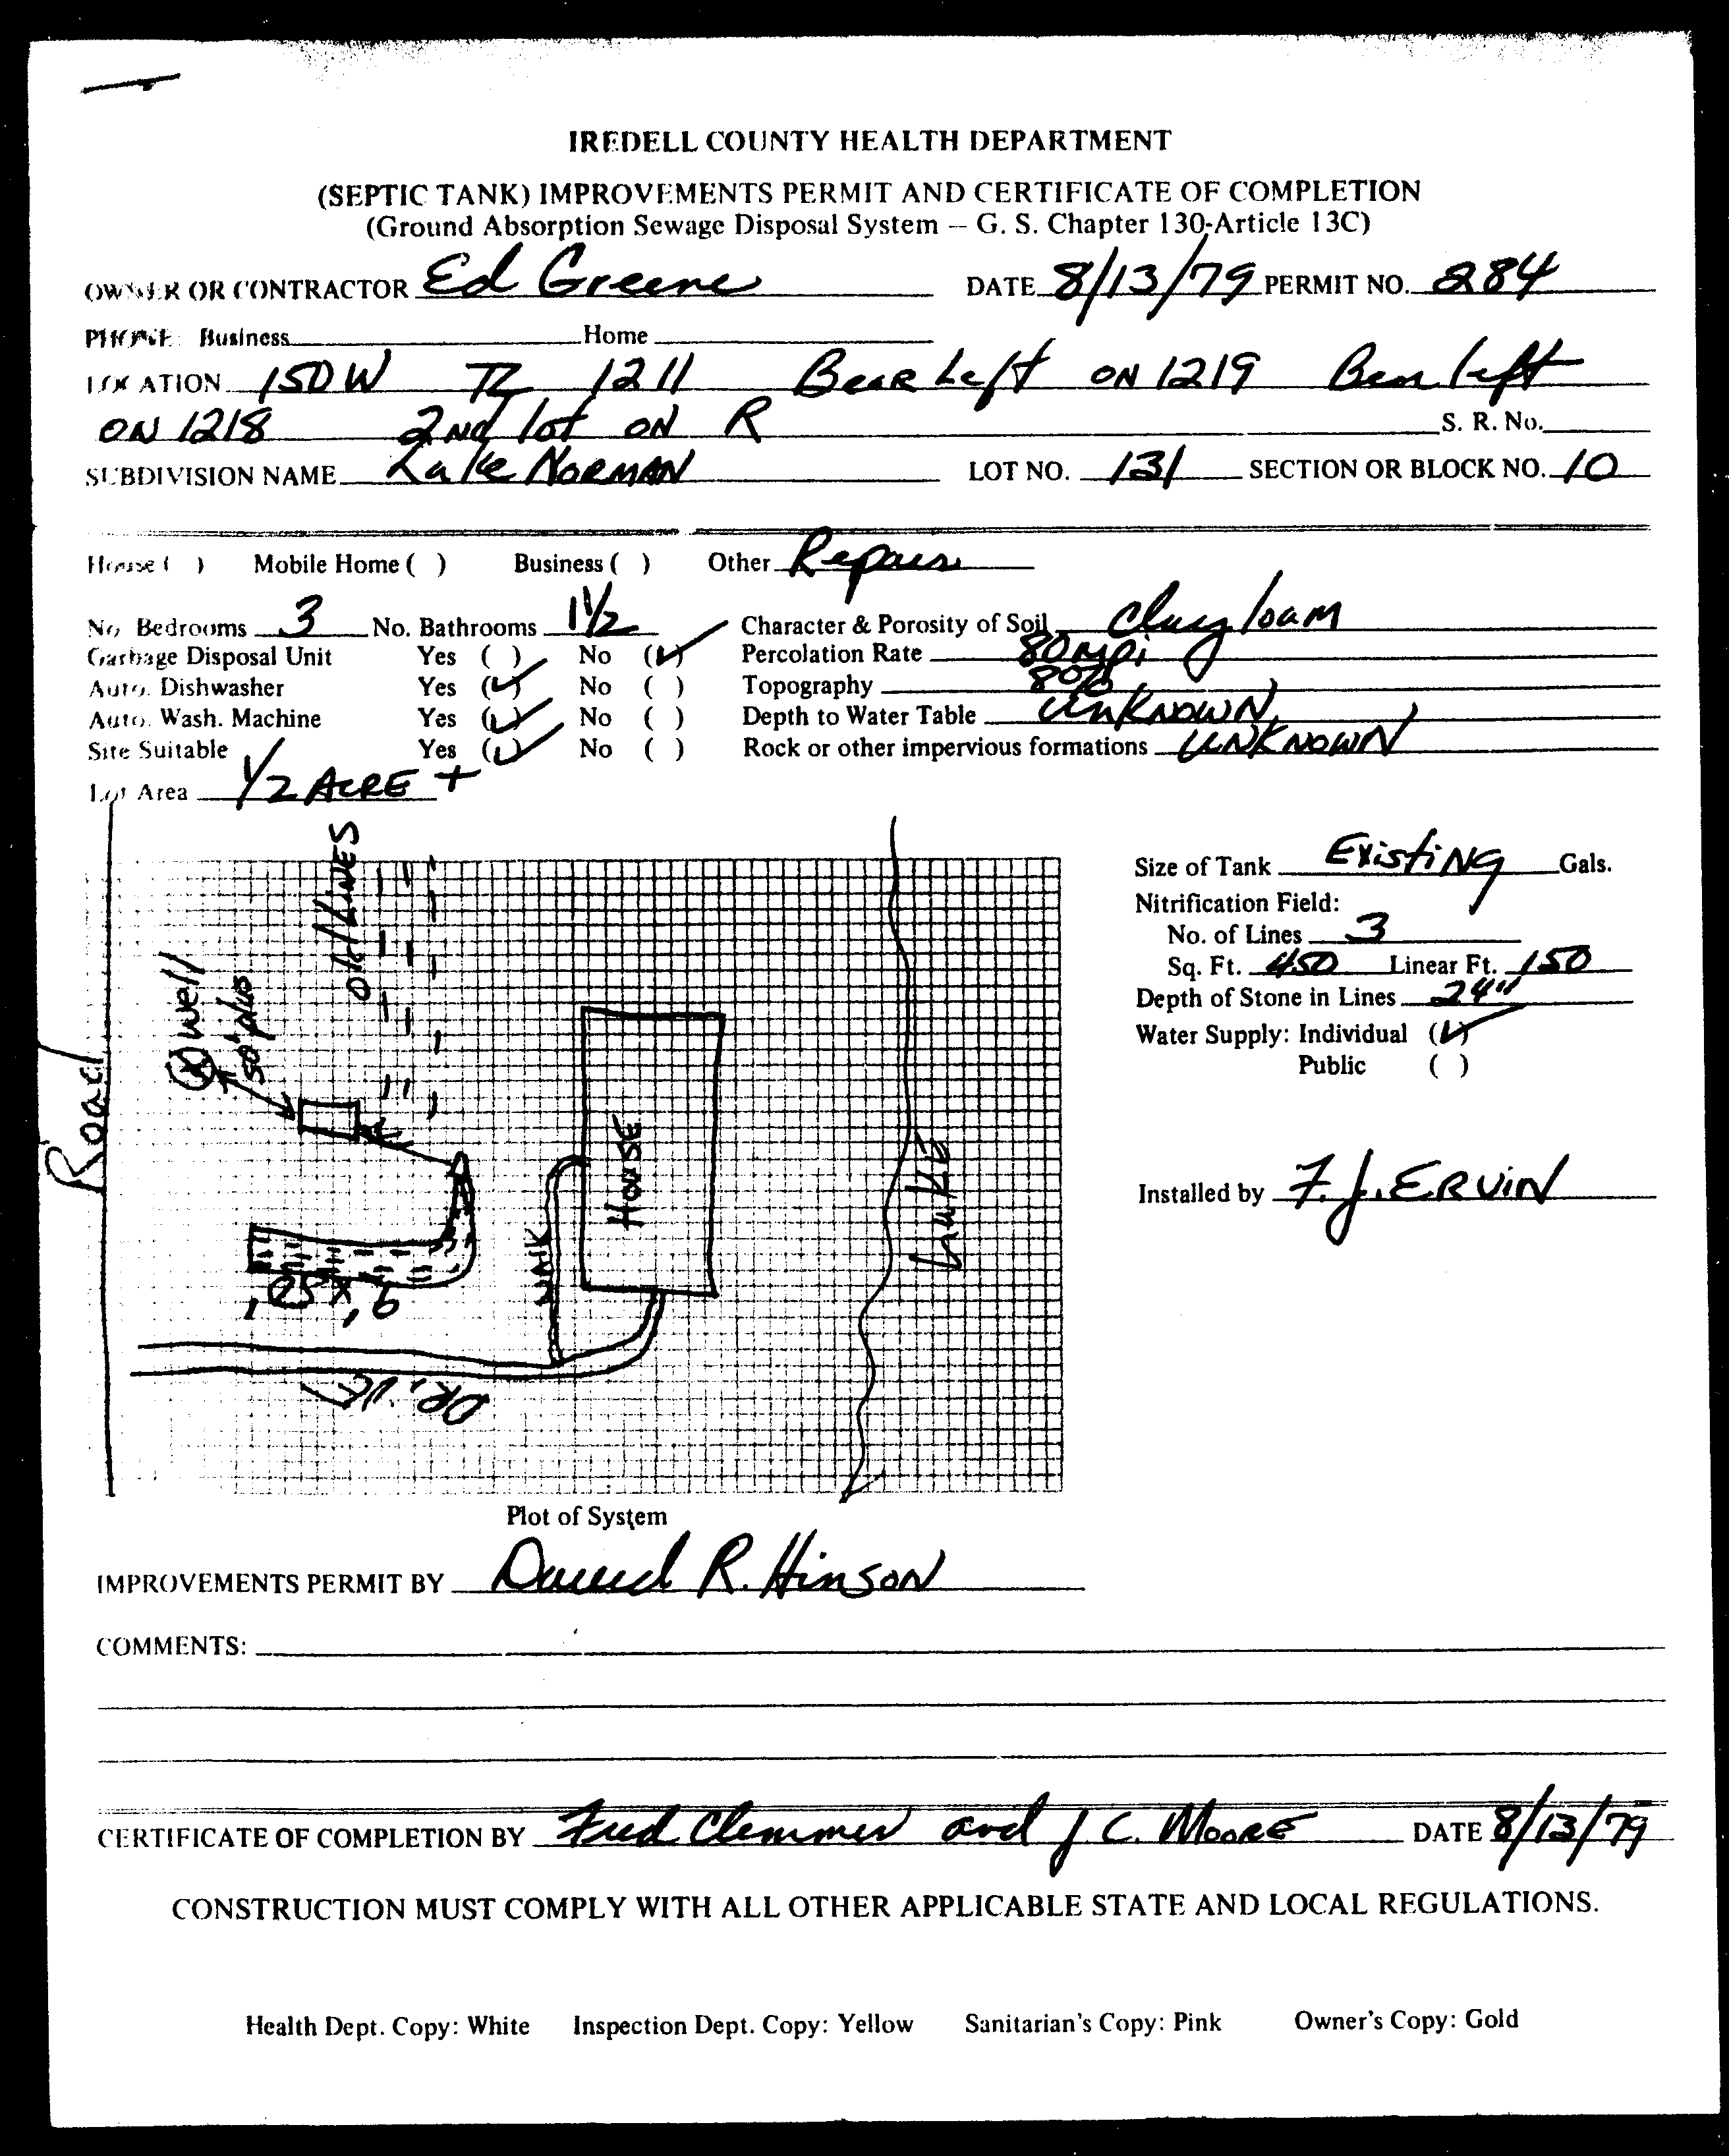 IREDELL COUNTY HEALTH DEPARTMENT
(SEPTIC TANK) IMPROVEMENTS PERMIT AND CERTIFICATE OF COMPLETION
(Ground Absorption Sewage Disposal System – G. S. Chapter 130-Article 13C)
OWNER OR CONTRACTOR Ed Greene DATE 8/13/79 PERMIT NO. 284
PHONE: Business Home
LOCATION 150 W TL 1211 Bear Left ON 1219 Bear left
ON 1218 2nd lot ON R S. R. No.
SUBDIVISION NAME Lake NORMAN LOT NO. 131 SECTION OR BLOCK NO. 10
House ( ) Mobile Home ( ) Business ( ) Other Repair
No. Bedrooms 3 No. Bathrooms 1 1/2 Character & Porosity of Soil Clay loam
Garbage Disposal Unit Yes ( ) No (✓) Percolation Rate 80 mpi
Auto. Dishwasher Yes (✓) No ( ) Topography 8%
Auto. Wash. Machine Yes (✓) No ( ) Depth to Water Table UNKNOWN
Site Suitable Yes (✓) No ( ) Rock or other impervious formations UNKNOWN
Lot Area 1/2 ACRE +
Road
well
50' plus
Old LINES
HOUSE
WALK
LAKE
DRIVE
Size of Tank Existing Gals.
Nitrification Field:
No. of Lines 3
Sq. Ft. 450 Linear Ft. 150
Depth of Stone in Lines 24"
Water Supply: Individual (✓)
Public ( )
Installed by F. J. ERVIN
Plot of System
IMPROVEMENTS PERMIT BY David R. Hinson
COMMENTS:
CERTIFICATE OF COMPLETION BY Fred Clemmer and J C. MOORE DATE 8/13/79
CONSTRUCTION MUST COMPLY WITH ALL OTHER APPLICABLE STATE AND LOCAL REGULATIONS.
Health Dept. Copy: White Inspection Dept. Copy: Yellow Sanitarian's Copy: Pink Owner's Copy: Gold